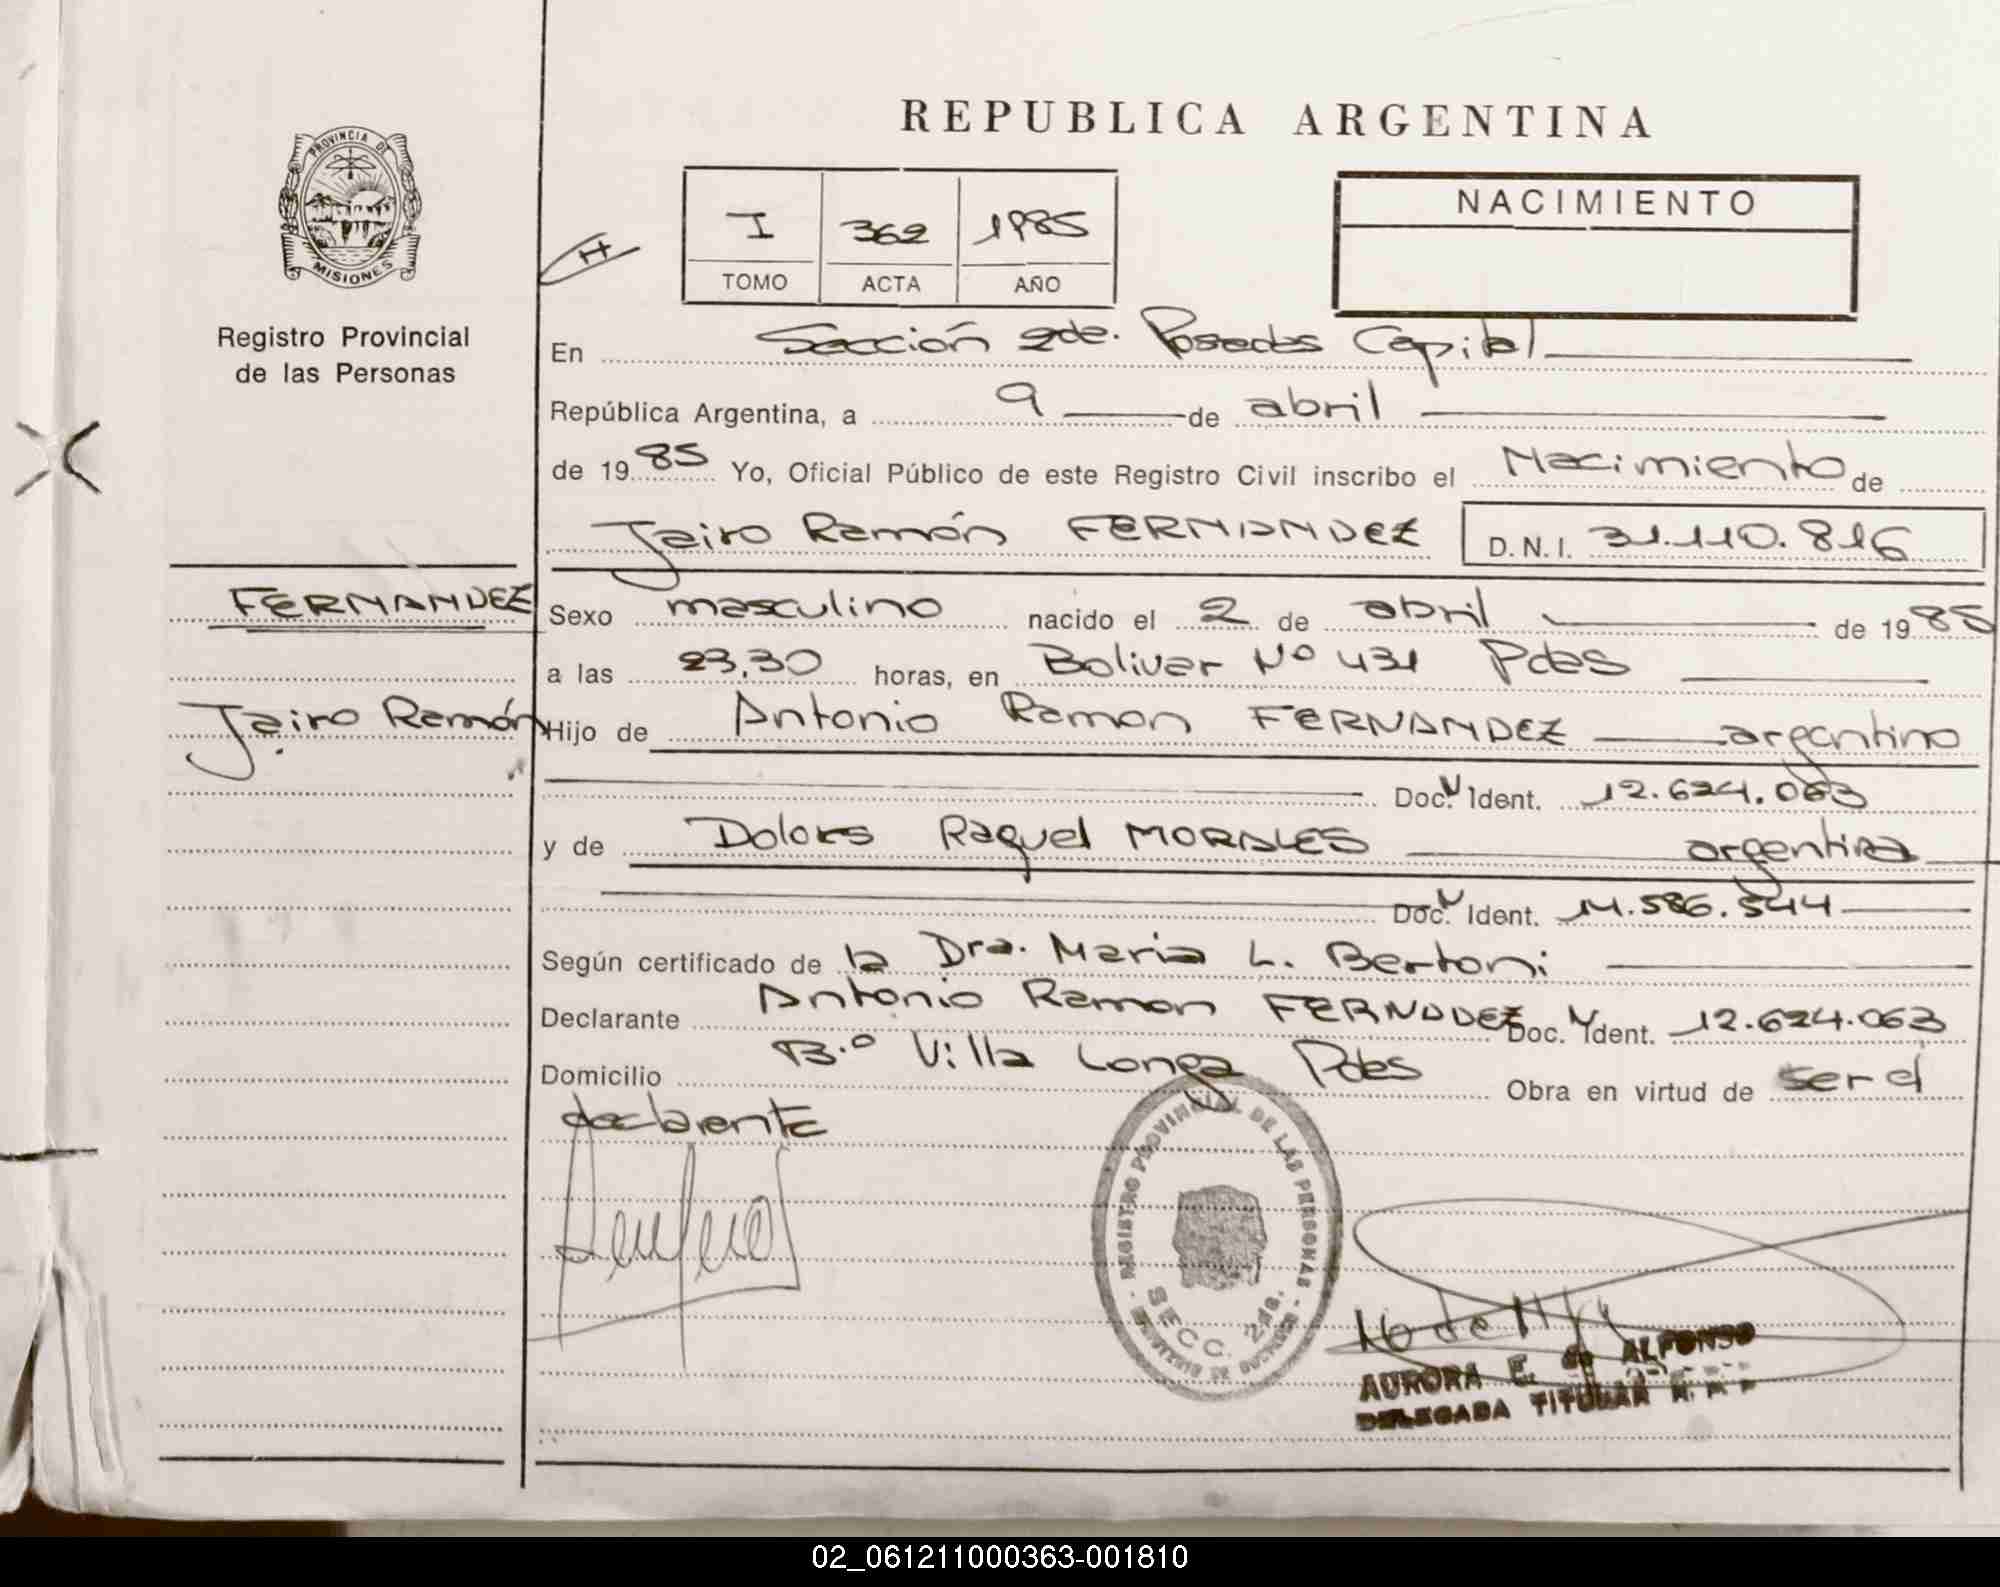 REPUBLICA ARGENTINA
PROVINCIA DE
MISIONES
Registro Provincial
de las Personas
I 362 1985
TOMO ACTA AÑO
NACIMIENTO
En Sección 2da. Posadas Capital
República Argentina, a 9 de abril
de 1985 Yo, Oficial Público de este Registro Civil inscribo el Nacimiento de
Jairo Ramón FERNANDEZ D.N.I. 31.110.816
FERNANDEZ
Jairo Ramón
Sexo masculino nacido el 2 de abril de 1985
a las 23,30 horas, en Bolivar Nº 431 Pdas
Hijo de Antonio Ramon FERNANDEZ argentino
Doc. Ident. 12.624.063
y de Dolores Raquel MORALES argentina
Doc. Ident. 14.586.544
Según certificado de la Dra. Maria L. Bertoni
Declarante Antonio Ramon FERNADEZ Doc. Ident. 12.624.063
Domicilio B.º Villa Longa Pdas Obra en virtud de ser el
declarante
REGISTRO PROVINCIAL DE LAS PERSONAS
SECC. 2da.
MINISTERIO DE GOBIERNO
AURORA E. de ALFONSO
DELEGADA TITULAR
02_061211000363-001810